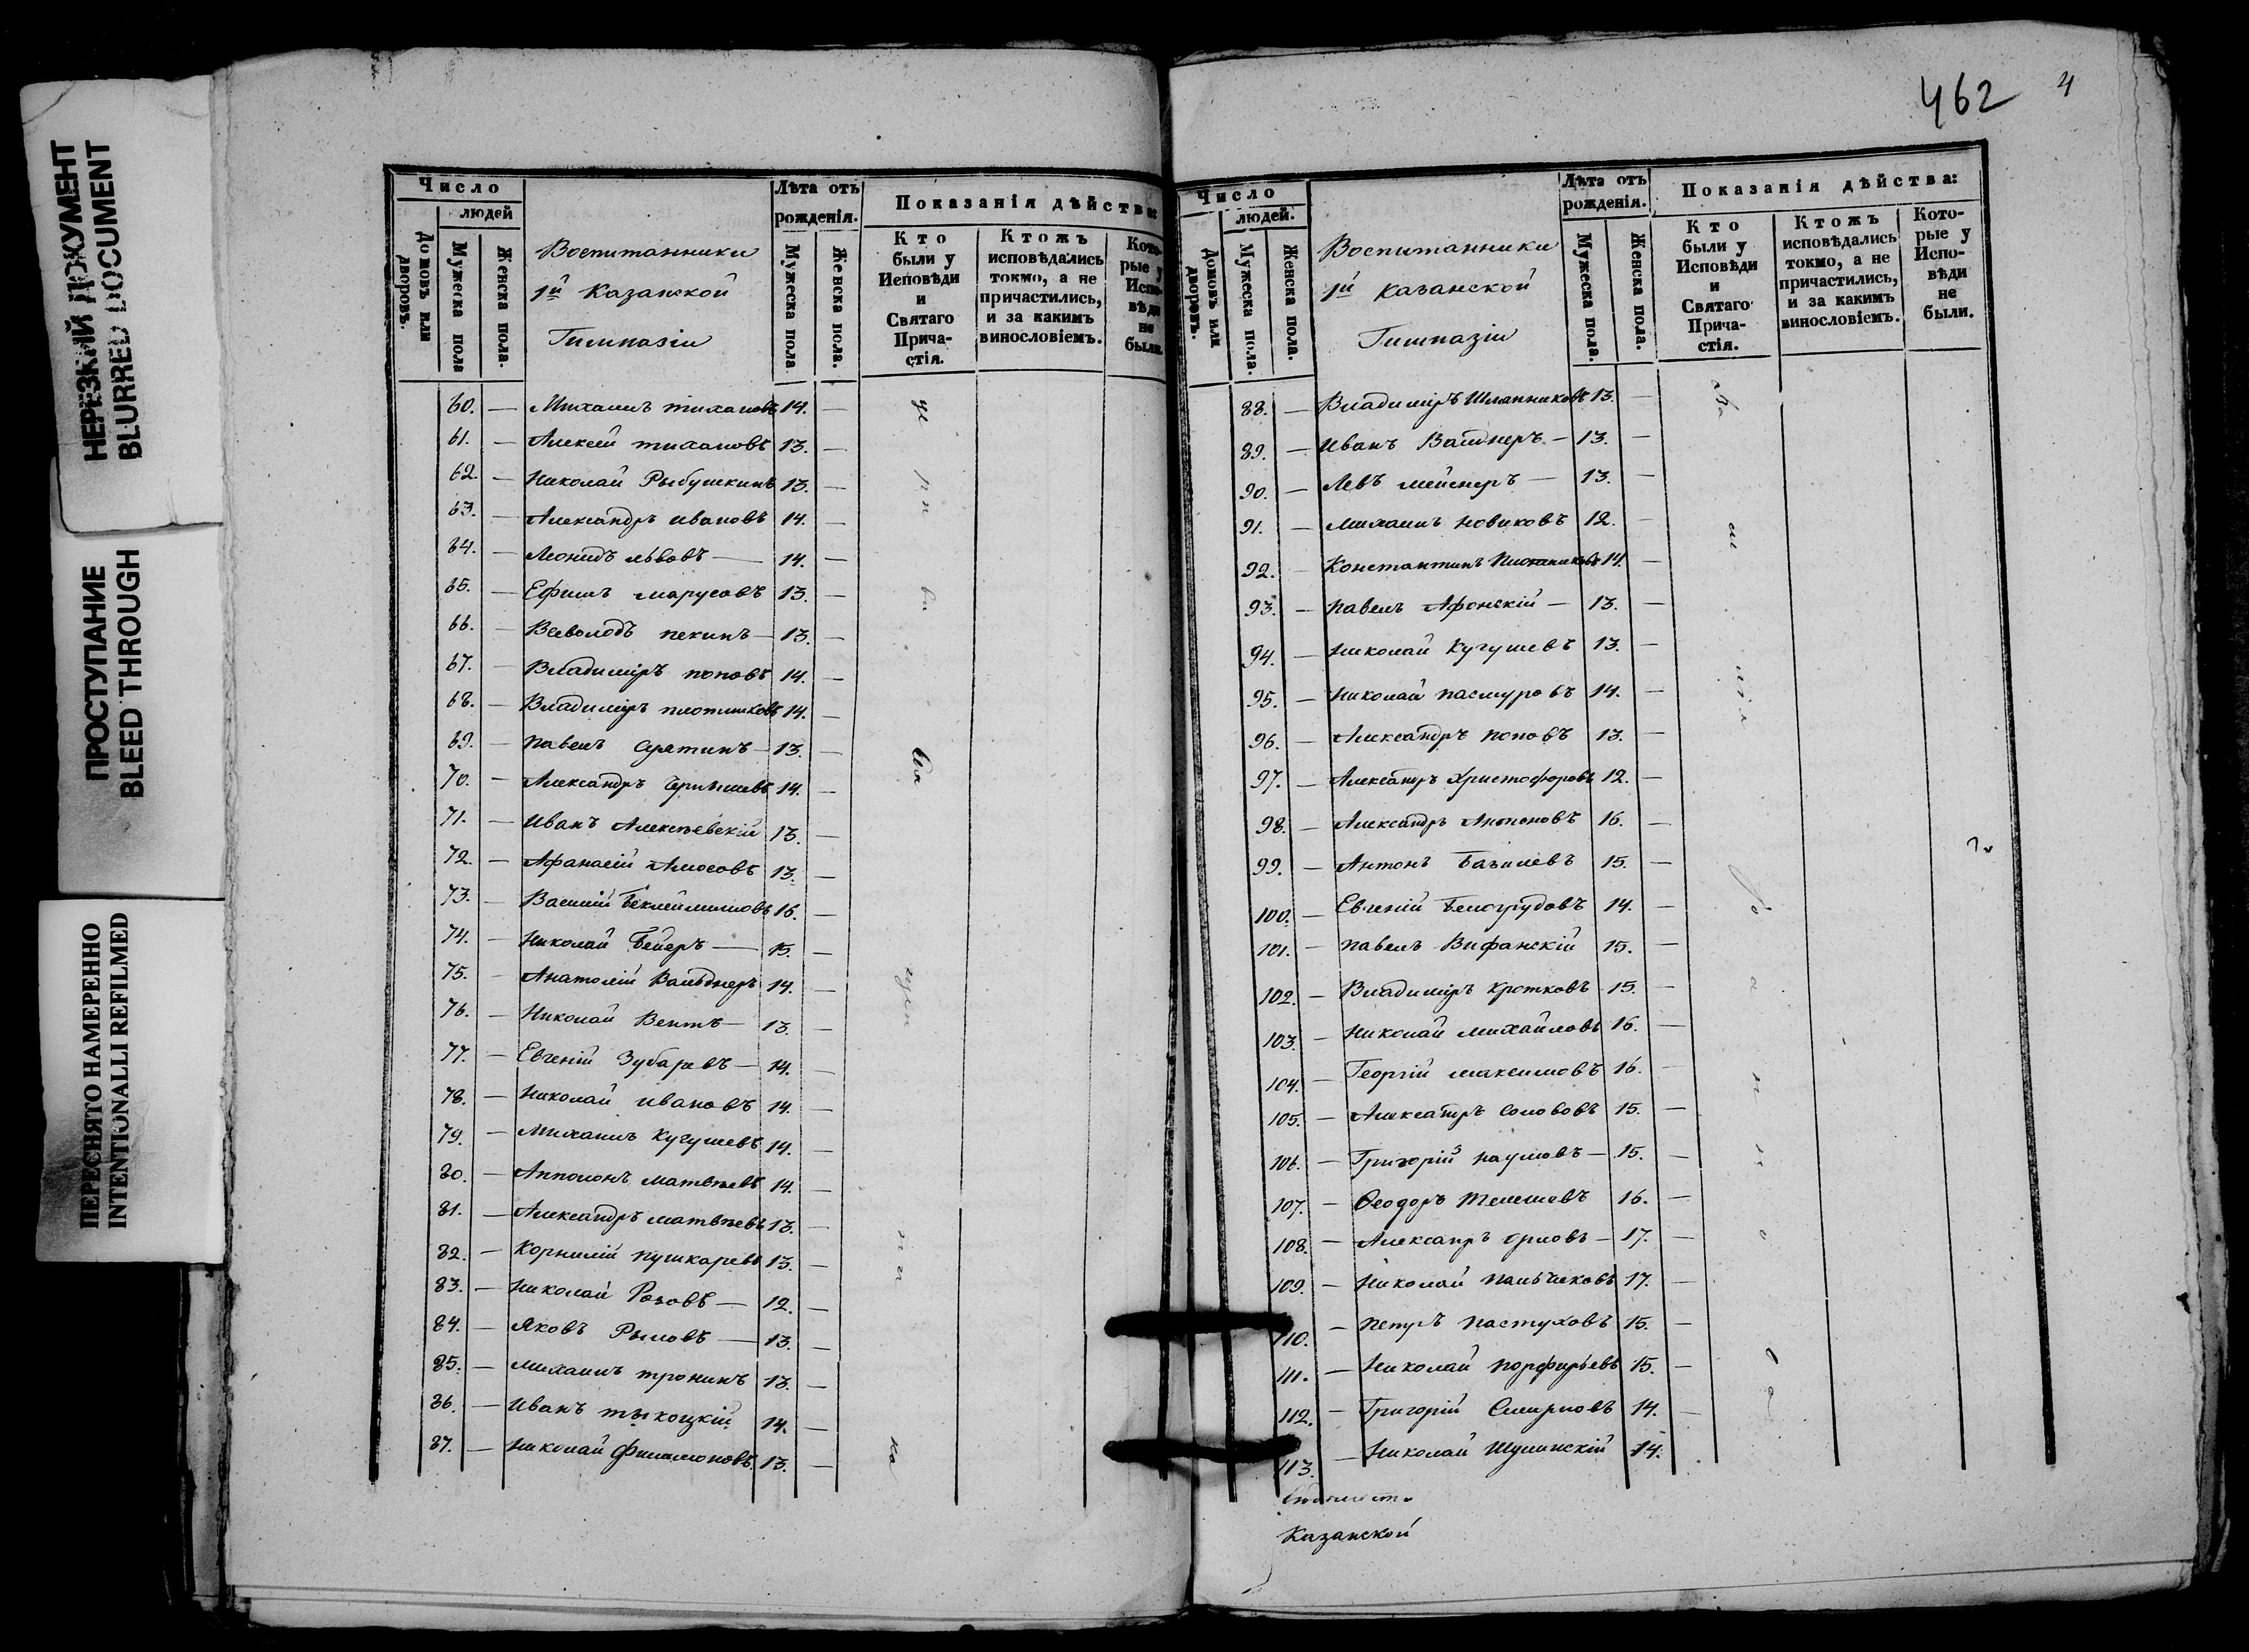 НЕРЕЗКИЙ ДОКУМЕНТ
BLURRED DOCUMENT
ПРОСТУПАНИЕ
BLEED THROUGH
ПЕРЕСНЯТО НАМЕРЕННО
INTENTIONALLI REFILMED
Число
людей
Домовъ или дворовъ.
Мужеска пола
Женска пола.
Воспитанники
1й Казанской
Гимназіи
Лѣта отъ рожденія.
Мужеска пола
Женска пола.
Показанія дѣйства:
Кто были у Исповѣди и Святаго Причастія.
Ктожъ исповѣдались токмо, а не причастились, и за какимъ винословіемъ.
Которые у Исповѣди не были.
60. — Михаилъ Тихановъ 14. —
61. — Алексей Тихановъ 13. —
62. — Николай Рыбушкинъ 13. —
63. — Александръ Ивановъ 14. —
64. — Леонидъ Львовъ — 14. —
65. — Ефимъ Марусовъ 13. —
66. — Всеволодъ Пекинъ — 13. —
67. — Владиміръ Поповъ 14. —
68. — Владиміръ Плотниковъ 14. —
69. — Павелъ — 13. —
70. — Александръ Чернышевъ 14. —
71. — Иванъ Алексѣевскій 13. —
72. — Афанасій Амосовъ 13. —
73. — Василій Беклемишовъ 16. —
74. — Николай Бейеръ — 15. —
75. — Анатолій Вальднеръ 14. —
76. — Николай Вентъ — 13. —
77. — Евгеній Зубаревъ — 14. —
78. — Николай Ивановъ 14. —
79. — Михаилъ Кугушевъ 14. —
80. — Апполонъ Матвѣевъ 14. —
81. — Александръ Матвѣевъ 13. —
82. — Корнилій Пушкаревъ 13. —
83. — Николай Розовъ — 12. —
84. — Яковъ Рыловъ — 13. —
85. — Михаилъ Тронинъ 13. —
86. — Иванъ Тыкоцкій 14. —
87. — Николай Филимоновъ. 13. —
462 4
Число
людей.
Домовъ или дворовъ.
Мужеска пола.
Женска пола.
Воспитанники
1й Казанской
Гимназіи
Лѣта отъ рожденія.
Мужеска пола.
Женска пола.
Показанія дѣйства:
Кто были у Исповѣди и Святаго Причастія.
Ктожъ исповѣдались токмо, а не причастились, и за какимъ винословіемъ.
Которые у Исповѣди не были.
88. — Владиміръ 13. —
89. — Иванъ Вальднеръ — 13. —
90. — Левъ Мейснеръ — 13. —
91. — Михаилъ Новиковъ 12. —
92. — Константинъ 14. —
93. — Павелъ Афонскій — 13. —
94. — Николай Кугушевъ 13. —
95. — Николай Пасмуровъ 14. —
96. — Александръ Поповъ 13. —
97. — Александръ Христофоровъ 12. —
98. — Александръ Антоновъ 16. —
99. — Антонъ Базилевъ 15. —
100. — Евгеній Белогрудовъ 14. —
101. — Павелъ Вифанскій 15. —
102. — Владиміръ Кротковъ 15. —
103. — Николай Михайловъ 16. —
104. — Георгій Максимовъ 16. —
105. — Александръ Солововъ 15. —
106. — Григорій Наумовъ — 15. —
107. — Ѳеодоръ Телешевъ 16. —
108. — Александръ Орловъ — 17. —
109. — Николай Пальчиковъ 17. —
110. — Петръ Пастуховъ 15. —
111. — Николай Порфирьевъ 15. —
112. — Григорій Смирновъ 14. —
113. — Николай Шулинскій 14.
Казанской